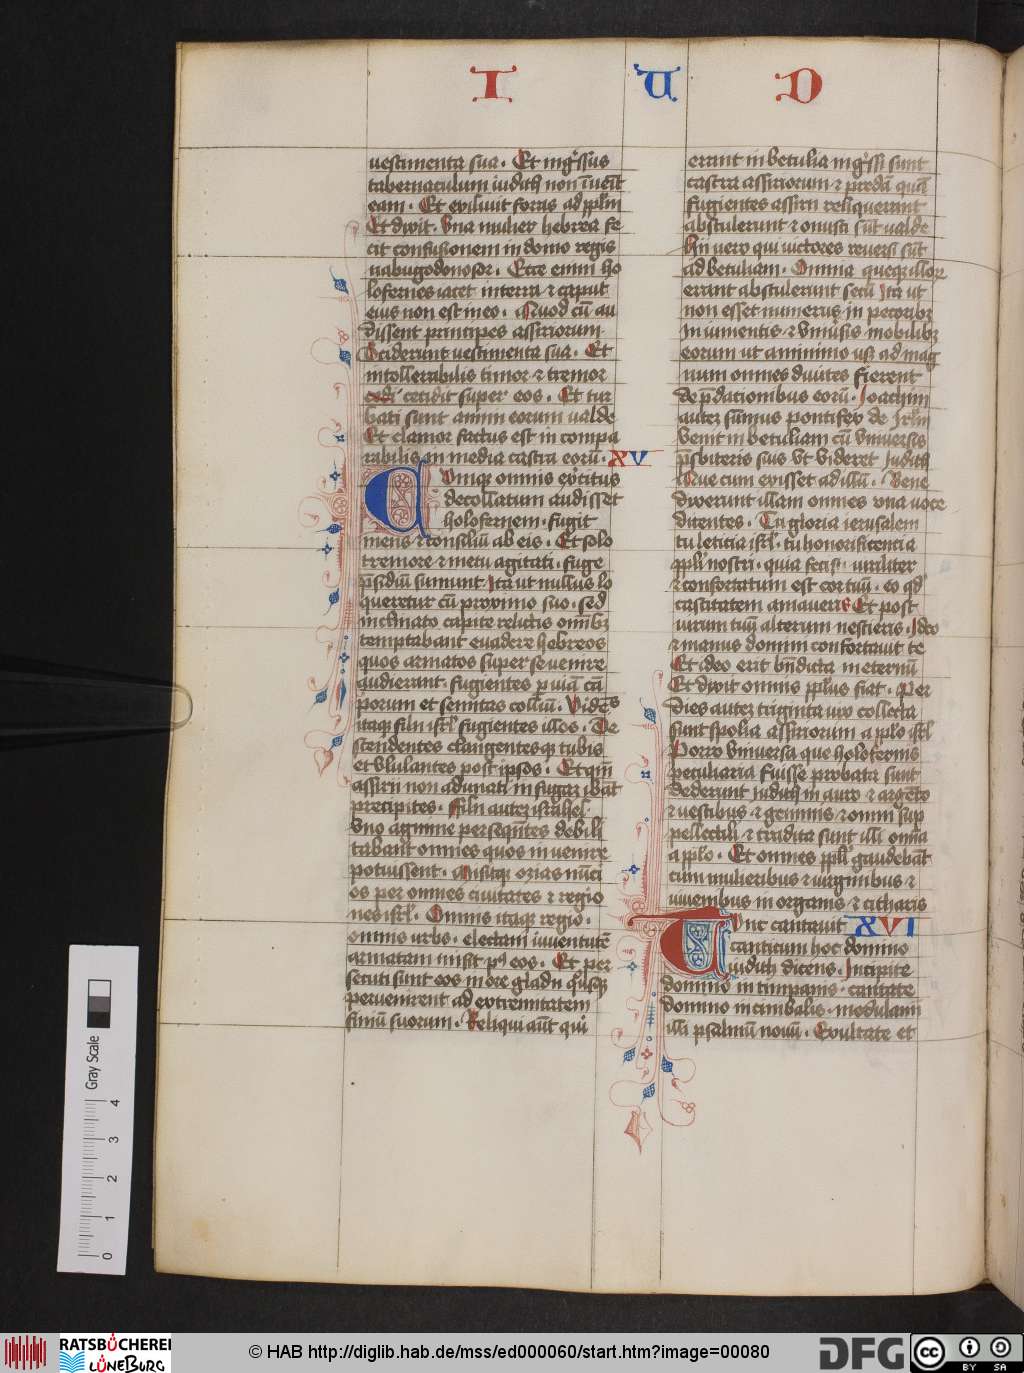 I U D
vestimenta sua. Et ing̾ssus
tabernaculum iudith non īuēit
eam. Et exiluit foras ad pp̄lm
Et dixit. Una mulier hebrea fe
cit confusionem in domo regis
nabugodonosor. Ecce enim ho
lofernes iacet in terra ⁊ caput
eius non est in eo. Quod cū au
dissent principes assiriorum
Sciderunt vestimenta sua. Et
intollerabilis timor ⁊ tremor
cecidit super eos. Et tur
bati sunt animi eorum valde
Et clamor factus est incompa
rabilis in media castra eorū. XV
Cunque omnis exercitus
decollatum audisset
holofernem. fugit
mens ⁊ consiliū ab eis. Et solo
tremore ⁊ metu agitati. fuge
p̄sidiū sumunt Ita ut nullus lo
queretur cū proximo suo. sed
inclinato capite relictis omībꝫ
temptabant evadere hebreos
quos armatos super se venire
audierant. fugientes ꝑ viā cā
porum et semitas colliū. Videntes
itaqꝫ filii isrl̄ fugientes illos. De
scendentes clangentesqꝫ tubis
et ululantes post ipsos. Et qm̄
assirii non adunati in fugaꝫ ibāt
precipites. Filii auteꝫ israhel
uno agmine perseqn̄tes debili
tabant omnes quos invenire
potuissent. Misitqꝫ ozias nūci
os per omnes civitates ⁊ regio
nes isrl̄. Omnis itaqꝫ regio.
omnis urbs. electam iuventutē
armatam misit pꝰ eos. Et per
secuti sunt eos in ore gladii quousqꝫ
pervenirent ad extremitatem
finiū suorum. Reliqui aūt qui
erant in betulia ing̾ssi sunt
castra assiriorum ⁊ predā quā
fugientes assirii reliquerant
abstulerunt ⁊ onusti sūt valde
Hii vero qui victores reversi sūt
ad betuliam. Omnia queqꝫ illoꝝ
erant abstulerunt secū Ita ut
non esset numerus in pecoribꝫ
in iumentis ⁊ universis mobilibꝫ
eorum ut a minimo usqꝫ ad mag
num omnes divites fierent
de p̄dationibus eorū. Joachim
auteꝫ sūmus pontifex de Jrlm̄
venit in betuliam cū universis
p̄sbiteris suis ut videret Judith
Que cum exisset ad illū. Bene
dixerunt illam omnes una voce
dicentes. Tu gloria ierusalem
tu leticia isrl̄. tu honorificentia
ppl̄i nostri. quia fecisti viriliter
⁊ confortatum est cor tuū. eo qd̄
castitatem amaveris Et post
virum tuū alterum nescieris. Ideo
⁊ manus domini confortavit te
Et ideo erit bn̄dicta in eternū
Et dixit omnis ppl̄us fiat. Per
dies auteꝫ triginta vix collecta
sunt spolia assiriorum a pplo isrl̄
Porro universa que holofernis
peculiaria fuisse probata sunt
dederunt Judith in auro ⁊ argēto
⁊ vestibus ⁊ gemmis ⁊ omni sup
pellectili ⁊ tradita sunt illi omīa
a pplo. Et omnes ppl̄i gaudebāt
cum mulieribus ⁊ virginibus ⁊
iuvenibus in organis ⁊ citharis
Tunc cantavit XVI
canticum hoc domino
iudith dicens. Incipite
domino in timpanis. cantate
domino in cimbalis. modulamini
illi psalmū novū. Exultate et
Gray Scale
0 1 2 3 4
RATSBÜCHEREI
LÜNEBURG
© HAB http://diglib.hab.de/mss/ed000060/start.htm?image=00080
DFG
cc BY SA